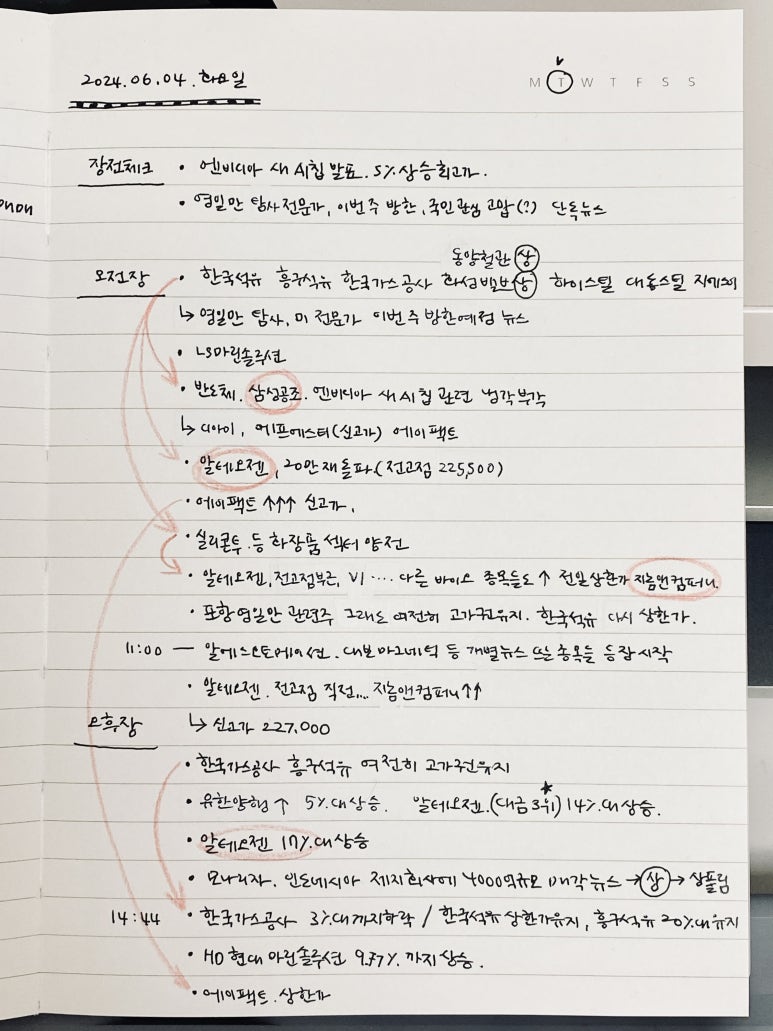 2024.06.04.화요일
M T W T F S S
장전체크 • 엔비디아 새 AI칩 발표. 5%상승최고가.
• 영일만 탐사전문가, 이번주 방한, 국민관심 고맙(?) 단독뉴스
동양철관 상
오전장 • 한국석유 흥구석유 한국가스공사 화성밸브 상 하이스틸 대동스틸 지에스이
↳ 영일만 탐사, 미 전문가 이번주방한예정 뉴스
• LS마린솔루션
• 반도체. 삼성공조. 엔비디아 새 AI칩 관련 냉각부각
↳ 디아이, 에프에스티(신고가) 에이팩트
• 알테오젠, 20만재돌파(전고점 225,500)
• 에이팩트 ↑↑↑ 신고가.
• 실리콘투 등 화장품 섹터 양전
• 알테오젠, 전고점부근, VI .... 다른 바이오 종목들도 ↑ 전일상한가 지놈앤컴퍼니.
• 포항영일만 관련주 그래도 여전히 고가권유지. 한국석유 다시 상한가.
11:00 — 알에스오토메이션. 대보마그네틱 등 개별뉴스 뜨는 종목들 등장 시작
• 알테오젠. 전고점 직전... 지놈앤컴퍼니↑↑
오후장 ↳ 신고가 227.000
• 한국가스공사 흥구석유 여전히 고가권유지
• 유한양행↑ 5%대상승. 알테오젠.(대금3위)★ 14%대상승.
• 알테오젠 17%대상승
• 모나리자. 인도네시아 제지회사에 4000억규모 매각뉴스 → 상 → 상풀림
14:44 • 한국가스공사 3%대까지하락 / 한국석유 상한가유지, 흥구석유 20%대유지
• HD현대마린솔루션 9.77% 까지상승.
• 에이팩트. 상한가